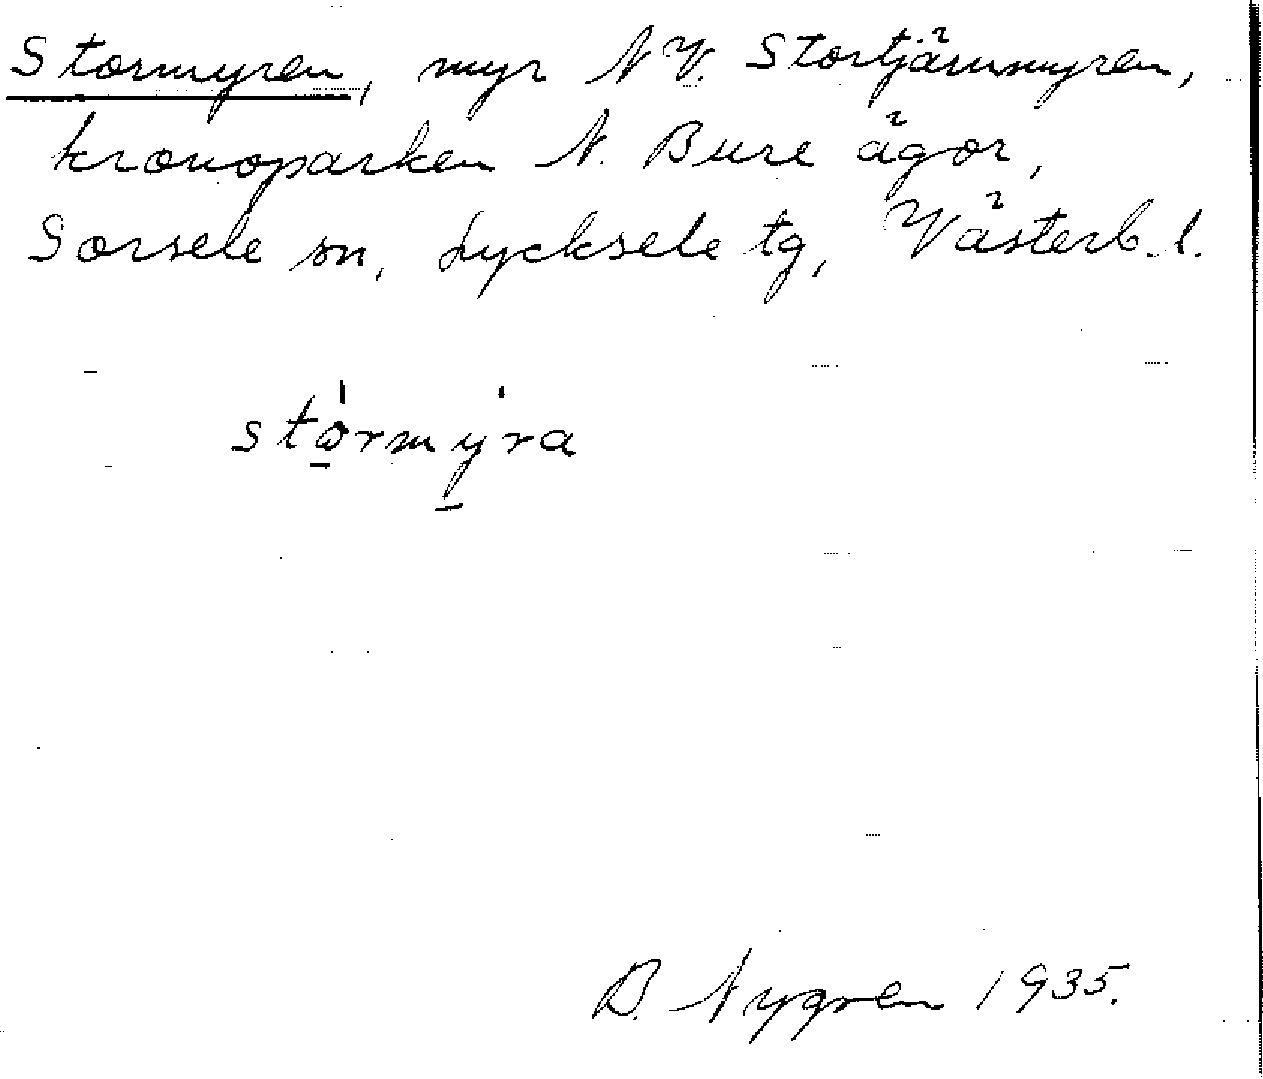 Stormyren, myr NV. Stortjärnmyren,
kronoparken N. Bure ägor,
Sorsele sn, Lycksele tg, Västerb. l.
stormyra
B. Nygren 1935.